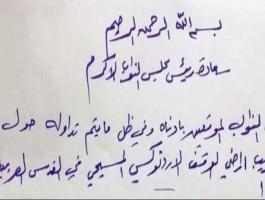 بسم الله الرحمن الرحيم
سعادة رئيس مجلس النواب الأكرم
النواب الموقعين بادناه وفي ظل ما يتم تداوله حول
اراضي الوقف الارثوذكسي المسيحي في القدس العربية